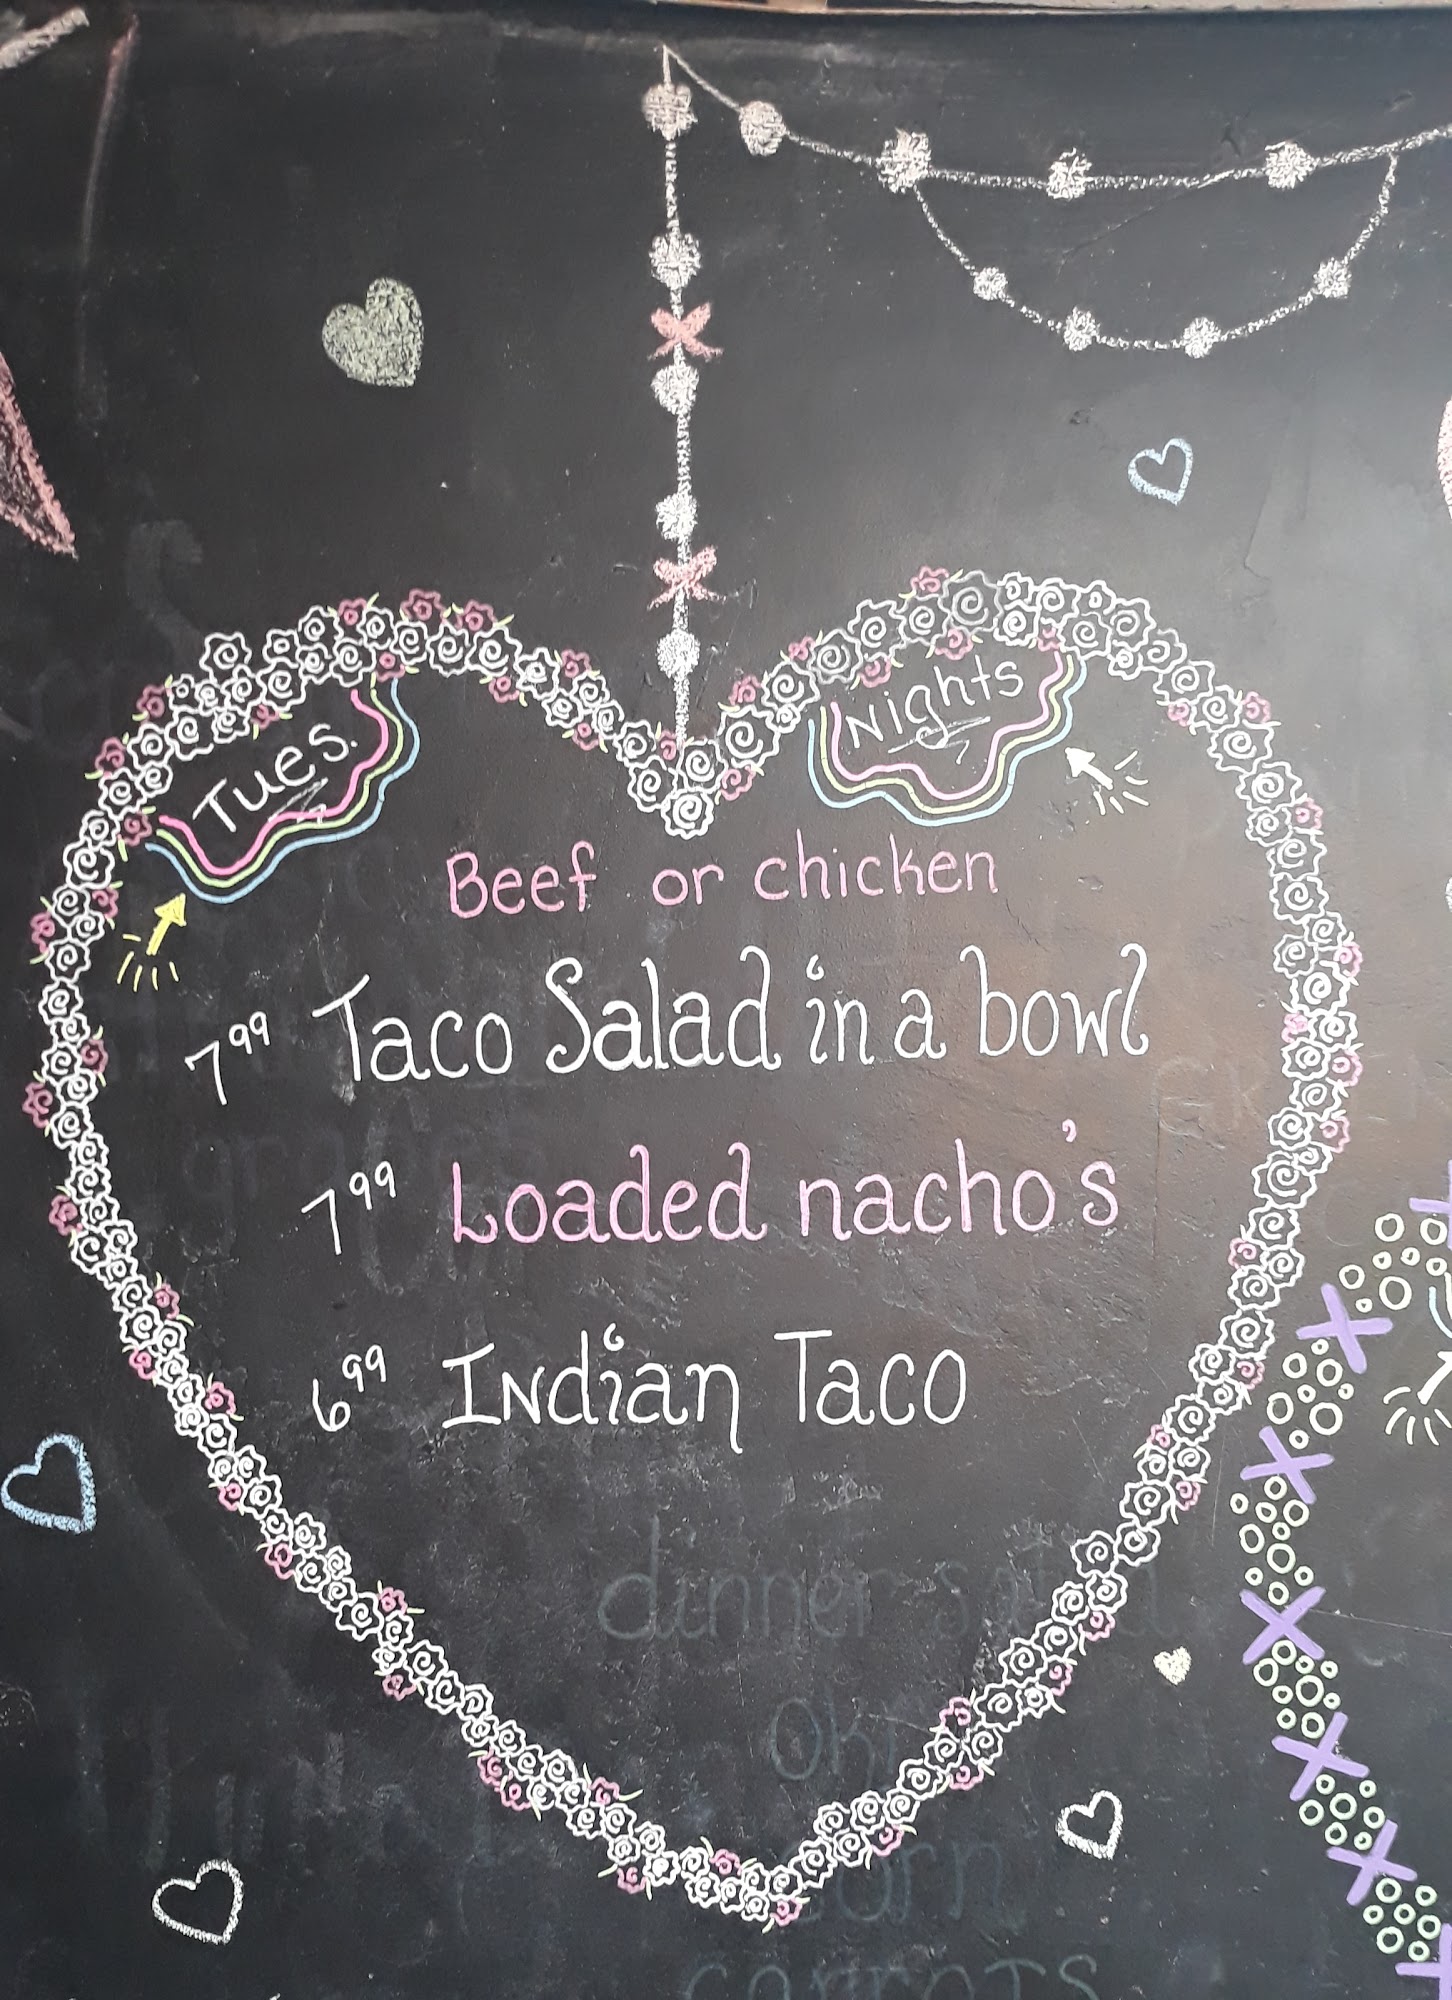 Tues. Nights
Beef or chicken
7⁹⁹ Taco Salad in a bowl
7⁹⁹ Loaded nacho's
6⁹⁹ Indian Taco
dinner salad
corn
carrots